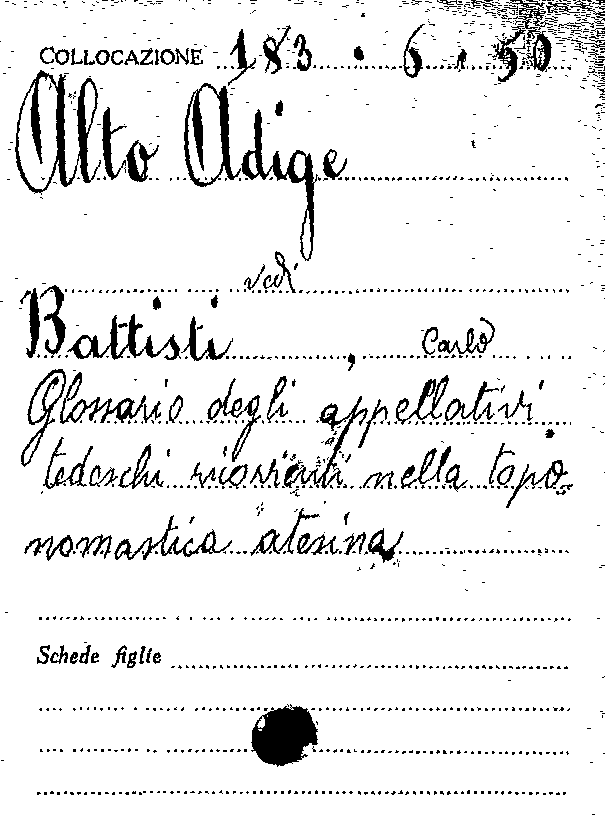 COLLOCAZIONE 183 . 6 . 50
Alto Adige
vedi
Battisti, Carlo
Glossario degli appellativi
tedeschi ricorrenti nella topo-
nomastica atesina
Schede figlie